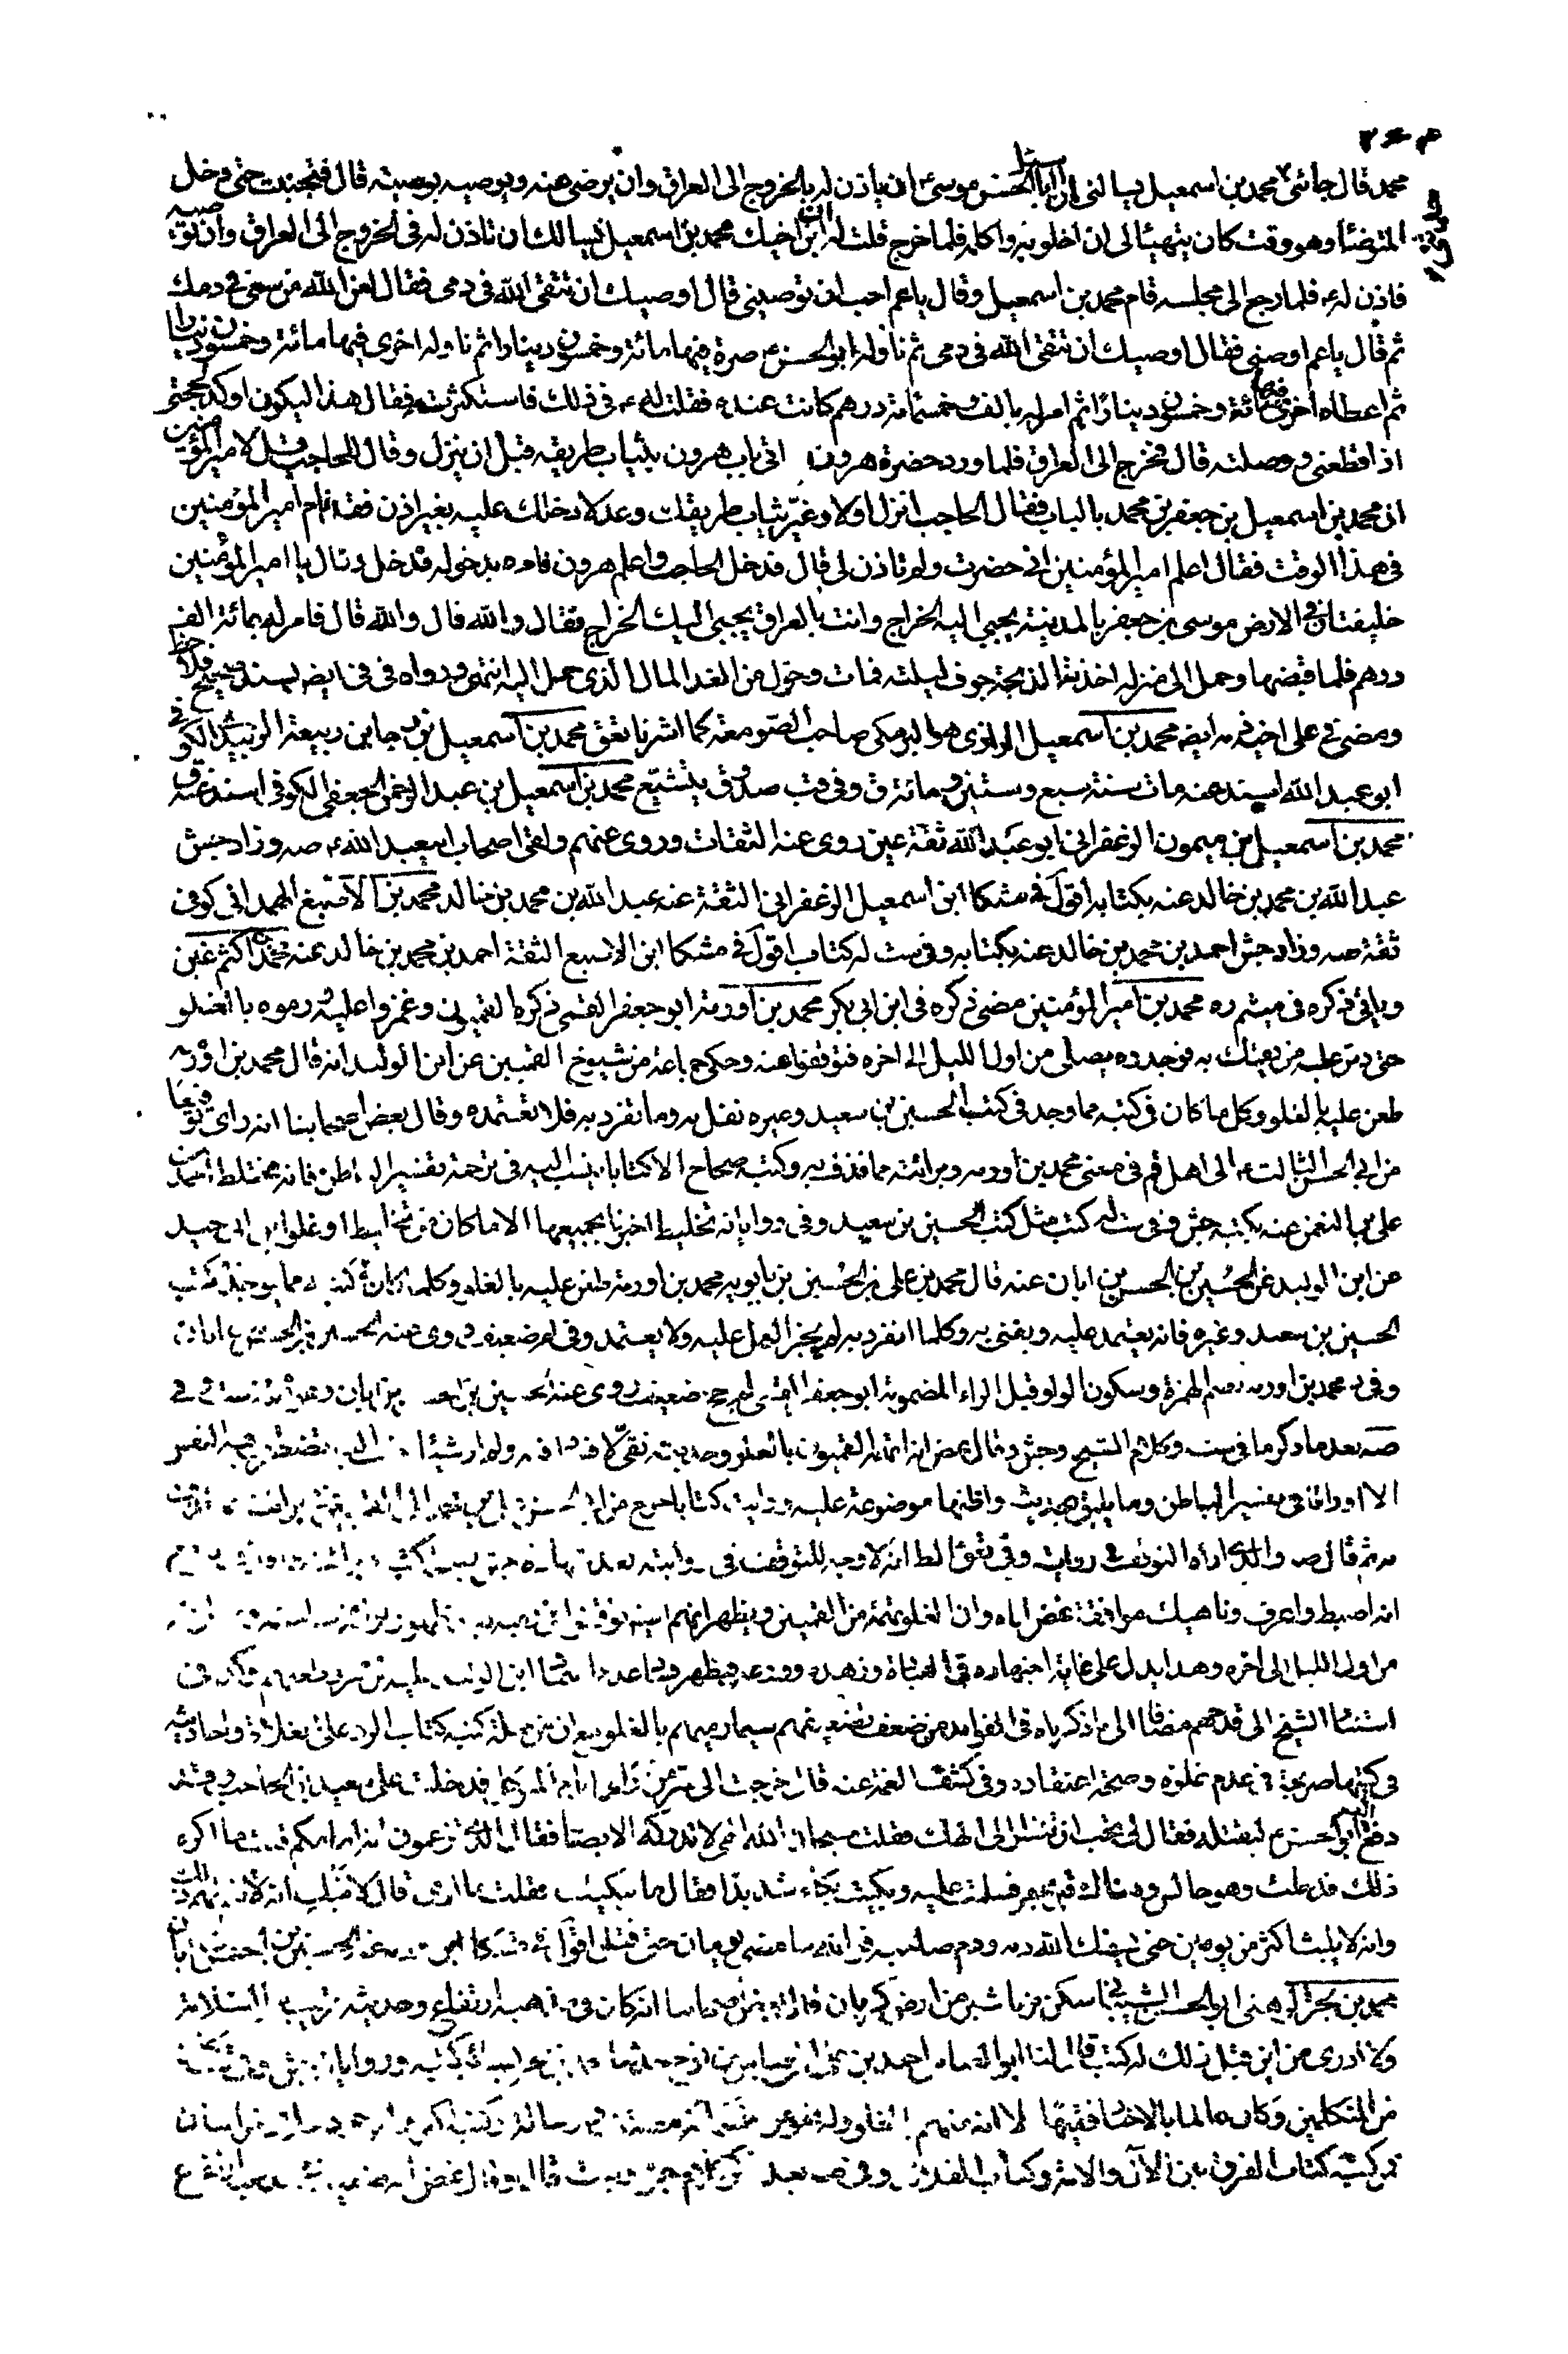 محمد قال جائنى محمد بن اسمعيل يسالنى ان اسئل ابا الحسن موسىء ان ياذن له بالخروج الى العراق وان يرضى عنه ويوصيه بوصيته قال فتجنبت حتى دخل
المتوضأ وهو وقت كان يتهيئا لى ان اخلو به واكلمه فلما خرج قلت له ان ابن اخيك محمد بن اسمعيل يسالك ان تاذن له فى الخروج الى العراق وان توصيه
فاذن لهء فلما رجع الى مجلسه قام محمد بن اسمعيل وقال ياعم احب ان توصينى قال اوصيك ان تتقى الله فى دمى فقال لعن الله من سعى فى دمك
ثم قال ياعم اوصنى فقال اوصيك ان تتقى الله فى دمى ثم ناوله ابو الحسنء صرة فيها مائة وخمسون دينارا ثم ناوله اخرى فيها مائة وخمسون دينارا
ثم اعطاه اخرى فيها مائة وخمسون دينارا ثم امر له بالف وخمسمائة درهم كانت عنده فقلت لهء فى ذلك فاستكثرته فقال هذا ليكون اوكد لحجتى
اذا قطعنى ووصلته قال فخرج الى العراق فلما ورد حضرة هرون اتى باب هرون بثياب طريقه قبل ان ينزل وقال للحاجب قل لامير المؤمنين
ان محمد بن اسمعيل بن جعفر بن محمد بالباب فقال الحاجب انزل اولا وغيّر ثياب طريقك وعد لادخلك عليه بغير اذن فقد نام امير المؤمنين
فى هذا الوقت فقال اعلم امير المؤمنين انى حضرت ولم تاذن لى قال فدخل الحاجب واعلم هرون فامره بدخوله فدخل وقال يا امير المؤمنين
خليفتان فى الارض موسى بن جعفر بالمدينة يجبى اليه الخراج وانت بالعراق يجبى اليك الخراج فقال والله قال والله قال فامر له بمائة الف
درهم فلما قبضها وحمل الى منزله اخذته الذبحة جوف ليلته فمات وحول من الغد المال الذى حمل اليه انتهى ورواه فى فى ايضه بسند صحيح فلاحظ
ومضى فى على اخيه ايضه محمد بن اسمعيل الرازى هو البرمكى صاحب الصومعة كما اشرنا تعق محمد بن اسمعيل بن رجا بن ربيعة الزبيدى الكوفى
ابو عبد الله اسند عنه مات سنة سبع وستين ومائة ق وفى قب صدوق يتشيع محمد بن اسمعيل بن عبد الرحمن الجعفى الكوفى اسند عنه ق
محمد بن اسمعيل بن ميمون الزعفرانى ابو عبد الله ثقة عين روى عنه الثقات وروى عنهم ولقى اصحاب ابيعبد اللهء صه وزاد جش
عبد الله بن محمد بن خالد عنه بكتابه اقول فى مشكا ابن اسمعيل الزعفرانى الثقة عنه عبد الله بن محمد بن خالد محمد بن الاصبغ الهمدانى كوفى
ثقة صه وزاد جش احمد بن محمد بن خالد عنه بكتابه وفى ست له كتاب اقول فى مشكا ابن الاصبغ الثقة احمد بن محمد بن خالد عنه محمد بن اكثم غبن
وياتى ذكره فى ميثم ره محمد بن امير المؤمنين مضى ذكره فى ابن ابى بكر محمد بن اورمة ابو جعفر القمى ذكره القميون وغمزوا عليه ورموه بالغلو
حتى دس عليه من يفتك به فوجدوه يصلى من اول الليل الى اخره فتوقفوا عنه وحكى جماعة من شيوخ القميين عن ابن الوليد انه قال محمد بن اورمه
طعن عليه بالغلو وكل ما كان فى كتبه مما وجد فى كتب الحسين بن سعيد وغيره نقل به وما تفرد به فلا تعتمده وقال بعض اصحابنا انه راى توقيعا
من ابى الحسن الثالثء الى اهل قم فى معنى محمد بن اورمه وبرائته مما قذف به وكتبه صحاح الا كتابا ينسب اليه فى ترجمة تفسير الباطن فانه مختلط احمد بن
على بن النعمن عنه بكتبه جش وفى ست له كتب مثل كتب الحسين بن سعيد وفى رواياته تخليط اخبرنا بجميعها الا ما كان من تخليط او غلو ابن ابى جيد
عن ابن الوليد عن الحسين بن الحسن بن ابان عنه قال محمد بن على بن الحسين بن بابويه محمد بن اورمة طعن عليه بالغلو وكلما كان فى كتبه مما يوجد فى كتب
الحسين بن سعيد وغيره فانه يعتمد عليه ويفتى به وكلما انفرد به لم يجز العمل عليه ولا يعتمد وفى لم ضعيف روى عنه الحسين بن الحسن بن ابان
وفى د محمد بن اورمه بضم الهمزة وسكون الواو وقبل الراء المضمومة ابو جعفر القمى لم جخ ضعيف روى عنه الحسين بن الحسن بن ابان
صه بعد ما ذكر ما فى ست وكلام الشيخ وجش وقال غض انه اتهمه القميون بالغلو وحديثه نقى لا فساد فيه ولم ار شيئا ينسب اليه تضطرب فيه النفس
الا اوراقا فى تفسير الباطن وما يليق بحديثه واظنها موضوعة عليه ورايت كتابا خرج من ابى الحسنء الى القميين فى برائته مما قذف
به ثم قال صه والذى اراه التوقف فى رواياته وفى تعق الظ انه لا وجه للتوقف فى روايته بعد
انه اضبط واعرف وناهيك موافقة غض اياه وان الغلو تهمة من القميين ويظهر انهم
من اول الليل الى اخره وهذا يدل على غاية اجتهاده فى العبادة وزهده وورعه ويظهر
استثنا الشيخ الى قدحهم مضافا الى ما ذكرناه فى الفوايد من ضعف تضعيفهم سيما رميهم بالغلو مع ان من جملة كتبه كتاب الرد على الغلاة واحاديثه
فى كتبها صريحة فى عدم غلوه وصحة اعتقاده وفى كشف الغمة عنه قال خرجت الى سر من راى ايام المتوكل فدخلت على سعيد الحاجب وقد
دفع اليه ابو الحسنء ليقتله فقال لى تحب ان تنظر الى الهك فقلت سبحان الله الهى لا تدركه الابصار فقال الذى تزعمون انه امامكم قلت ما اكره
ذلك فدخلت وهو جالس وهناك قبر يحفر فسلمت عليه وبكيت بكاء شديدا فقال ما يبكيك فقلت ما ارى قال لا تبك انه لا يتم لهم ذلك
وانه لا يلبث اكثر من يومين حتى يسفك الله دمه ودم صاحبه فوالله ما مضى يومان حتى قتل اقول فى مشكا ابن اورمه عنه الحسين بن الحسن بن ابان
محمد بن بحر الرهنى ابو الحسين الشيبانى ساكن نرماشير من ارض كرمان قال بعض اصحابنا انه كان فى مذهبه ارتفاع وحديثه قريب من السلامة
ولا ادرى من اين قيل ذلك له كتب قال لنا ابو العباس احمد بن
من المتكلمين وكان عالما بالاخبار فقيها الا انه متهم بالغلو وله نحو من خمسمائة مصنف ورسالة وكتبه اكثرها موجودة ببلاد خراسان
فمن كتبه كتاب الفرق بين الآل والامة وكتاب القلائد وفى صه بعد